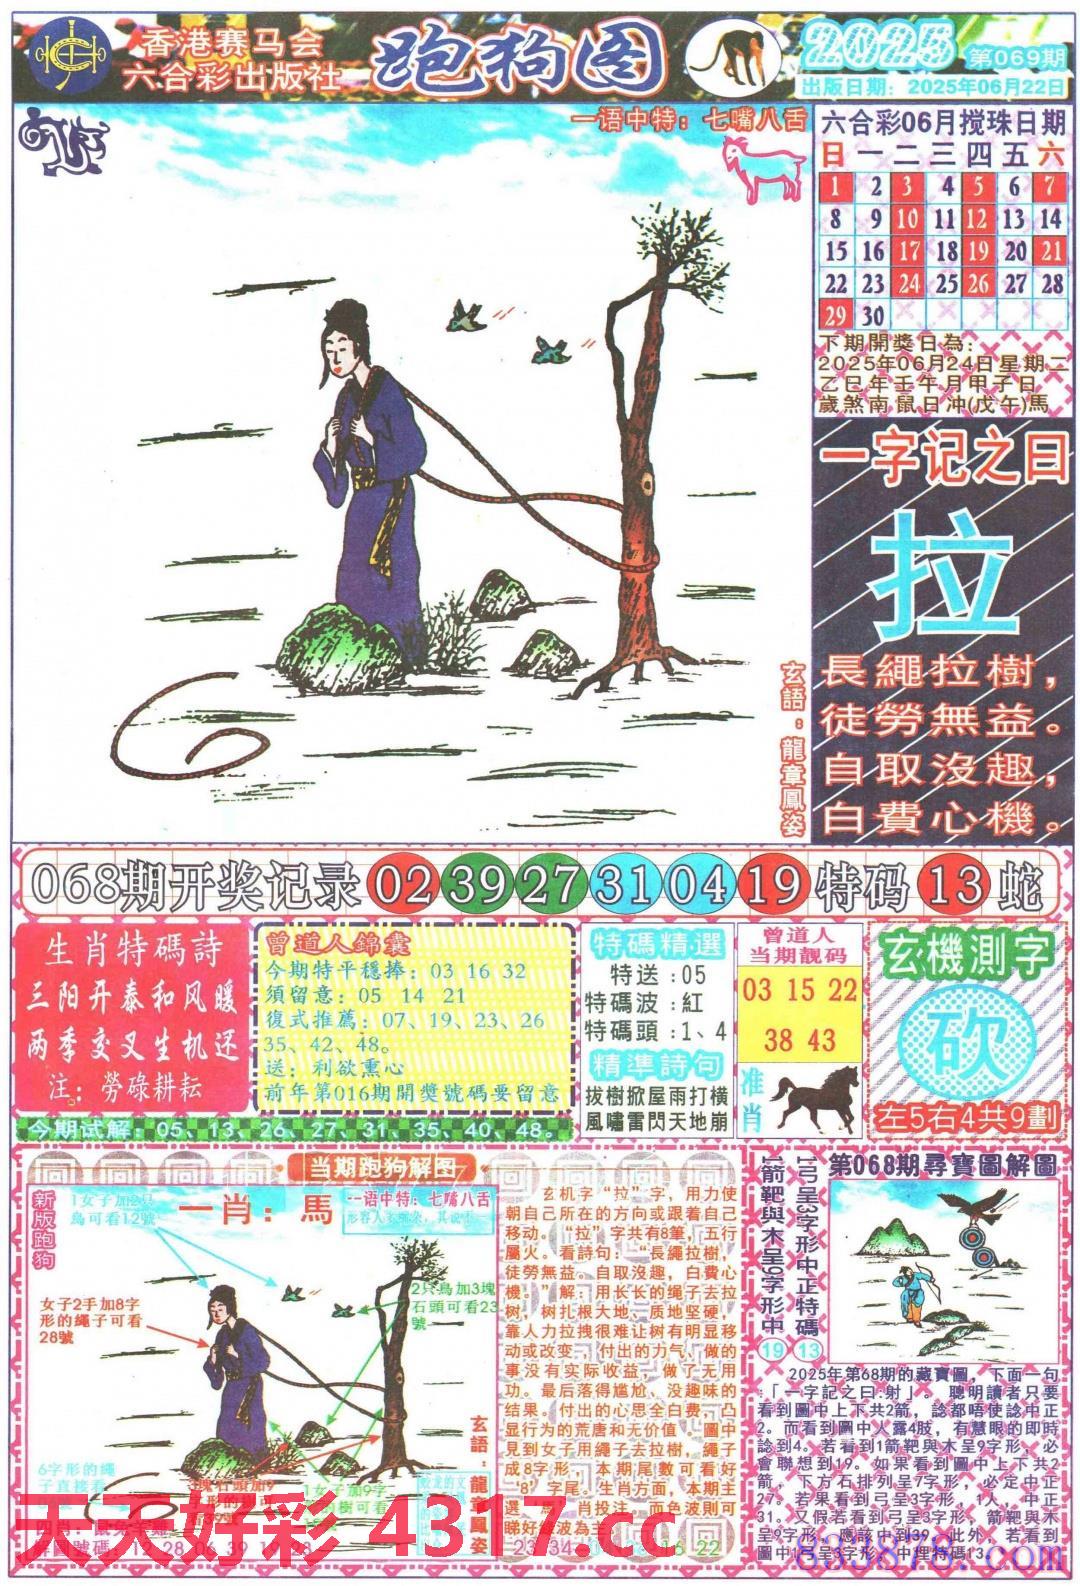 香港赛马会
六合彩出版社
跑狗图
2025
第069期
出版日期：2025年06月22日
一语中特：七嘴八舌
六合彩06月搅珠日期
日一二三四五六
1 2 3 4 5 6 7
8 9 10 11 12 13 14
15 16 17 18 19 20 21
22 23 24 25 26 27 28
29 30
下期開獎日為：
2025年06月24日星期二
乙巳年壬午月甲子日
歲煞南鼠日冲(戊午)馬
一字记之曰
拉
長繩拉樹，
徒勞無益。
自取沒趣，
白費心機。
玄語：龍章鳳姿
068期开奖记录 02 39 27 31 04 19 特码 13 蛇
生肖特碼詩
三阳开泰和风暖
两季交叉生机还
注：勞碌耕耘
曾道人錦囊
今期特平穩捧：03 16 32
須留意：05 14 21
復式推薦：07、19、23、26
35、42、48。
送：利欲熏心
前年第016期開獎號碼要留意
今期试解：05、13、26、27、31、35、40、48。
特碼精選
特送：05
特碼波：紅
特碼頭：1、4
精準詩句
拔樹掀屋雨打橫
風嘯雷閃天地崩
曾道人
当期靓码
03 15 22
38 43
准肖
玄機測字
砍
左5右4共9劃
当期跑狗解图
新版跑狗
1女子加2只
鳥可看12號
一肖：馬
一语中特：七嘴八舌
女子2手加8字
形的繩子可看
28號
2只鳥加3塊
石頭可看23
號
6字形的繩
子直接看
玄語：龍章鳳姿
玄机字“拉”字，用力使
朝自己所在的方向或跟着自己
移动。“拉”字共有8筆，五行
屬火。看詩句：“長繩拉樹，
徒勞無益。自取沒趣，白費心
機。”解：用长长的绳子去拉
树，树扎根大地、质地坚硬，
靠人力拉拽很难让树有明显移
动或改变，付出的力气、做的
事没有实际收益，做了无用
功。最后落得尴尬、没趣味的
结果。付出的心思全白费，凸
显行为的荒唐和无价值。圖中
見到女子用繩子去拉樹，繩子
成8字形。本期尾數可看好
“8”字尾。生肖方面，本期主
選“馬”肖投注，而色波則可
睇好綠波為主。
16 22
第068期尋寶圖解圖
1箭靶與木呈9字形中
19
1弓呈3字形中正特碼
13
2025年第68期的藏寶圖，下面一句
：「一字記之曰:射」。聰明讀者只要
看到圖中上下共2箭，諗都唔使諗中正
2。而看到圖中火露4股，有慧眼的即時
諗到4。若看到1箭靶與木呈9字形，必
會聯想到19。如果看到圖中上下共2
箭，下方石排列呈7字形，必定中正
27。若果看到弓呈3字形，1人，中正
31。又假若看到弓呈3字形，箭靶與木
呈9字形，應該中到39。此外，若看到
圖中1弓呈3字形，中埋特碼13。
天天好彩 4317.cc